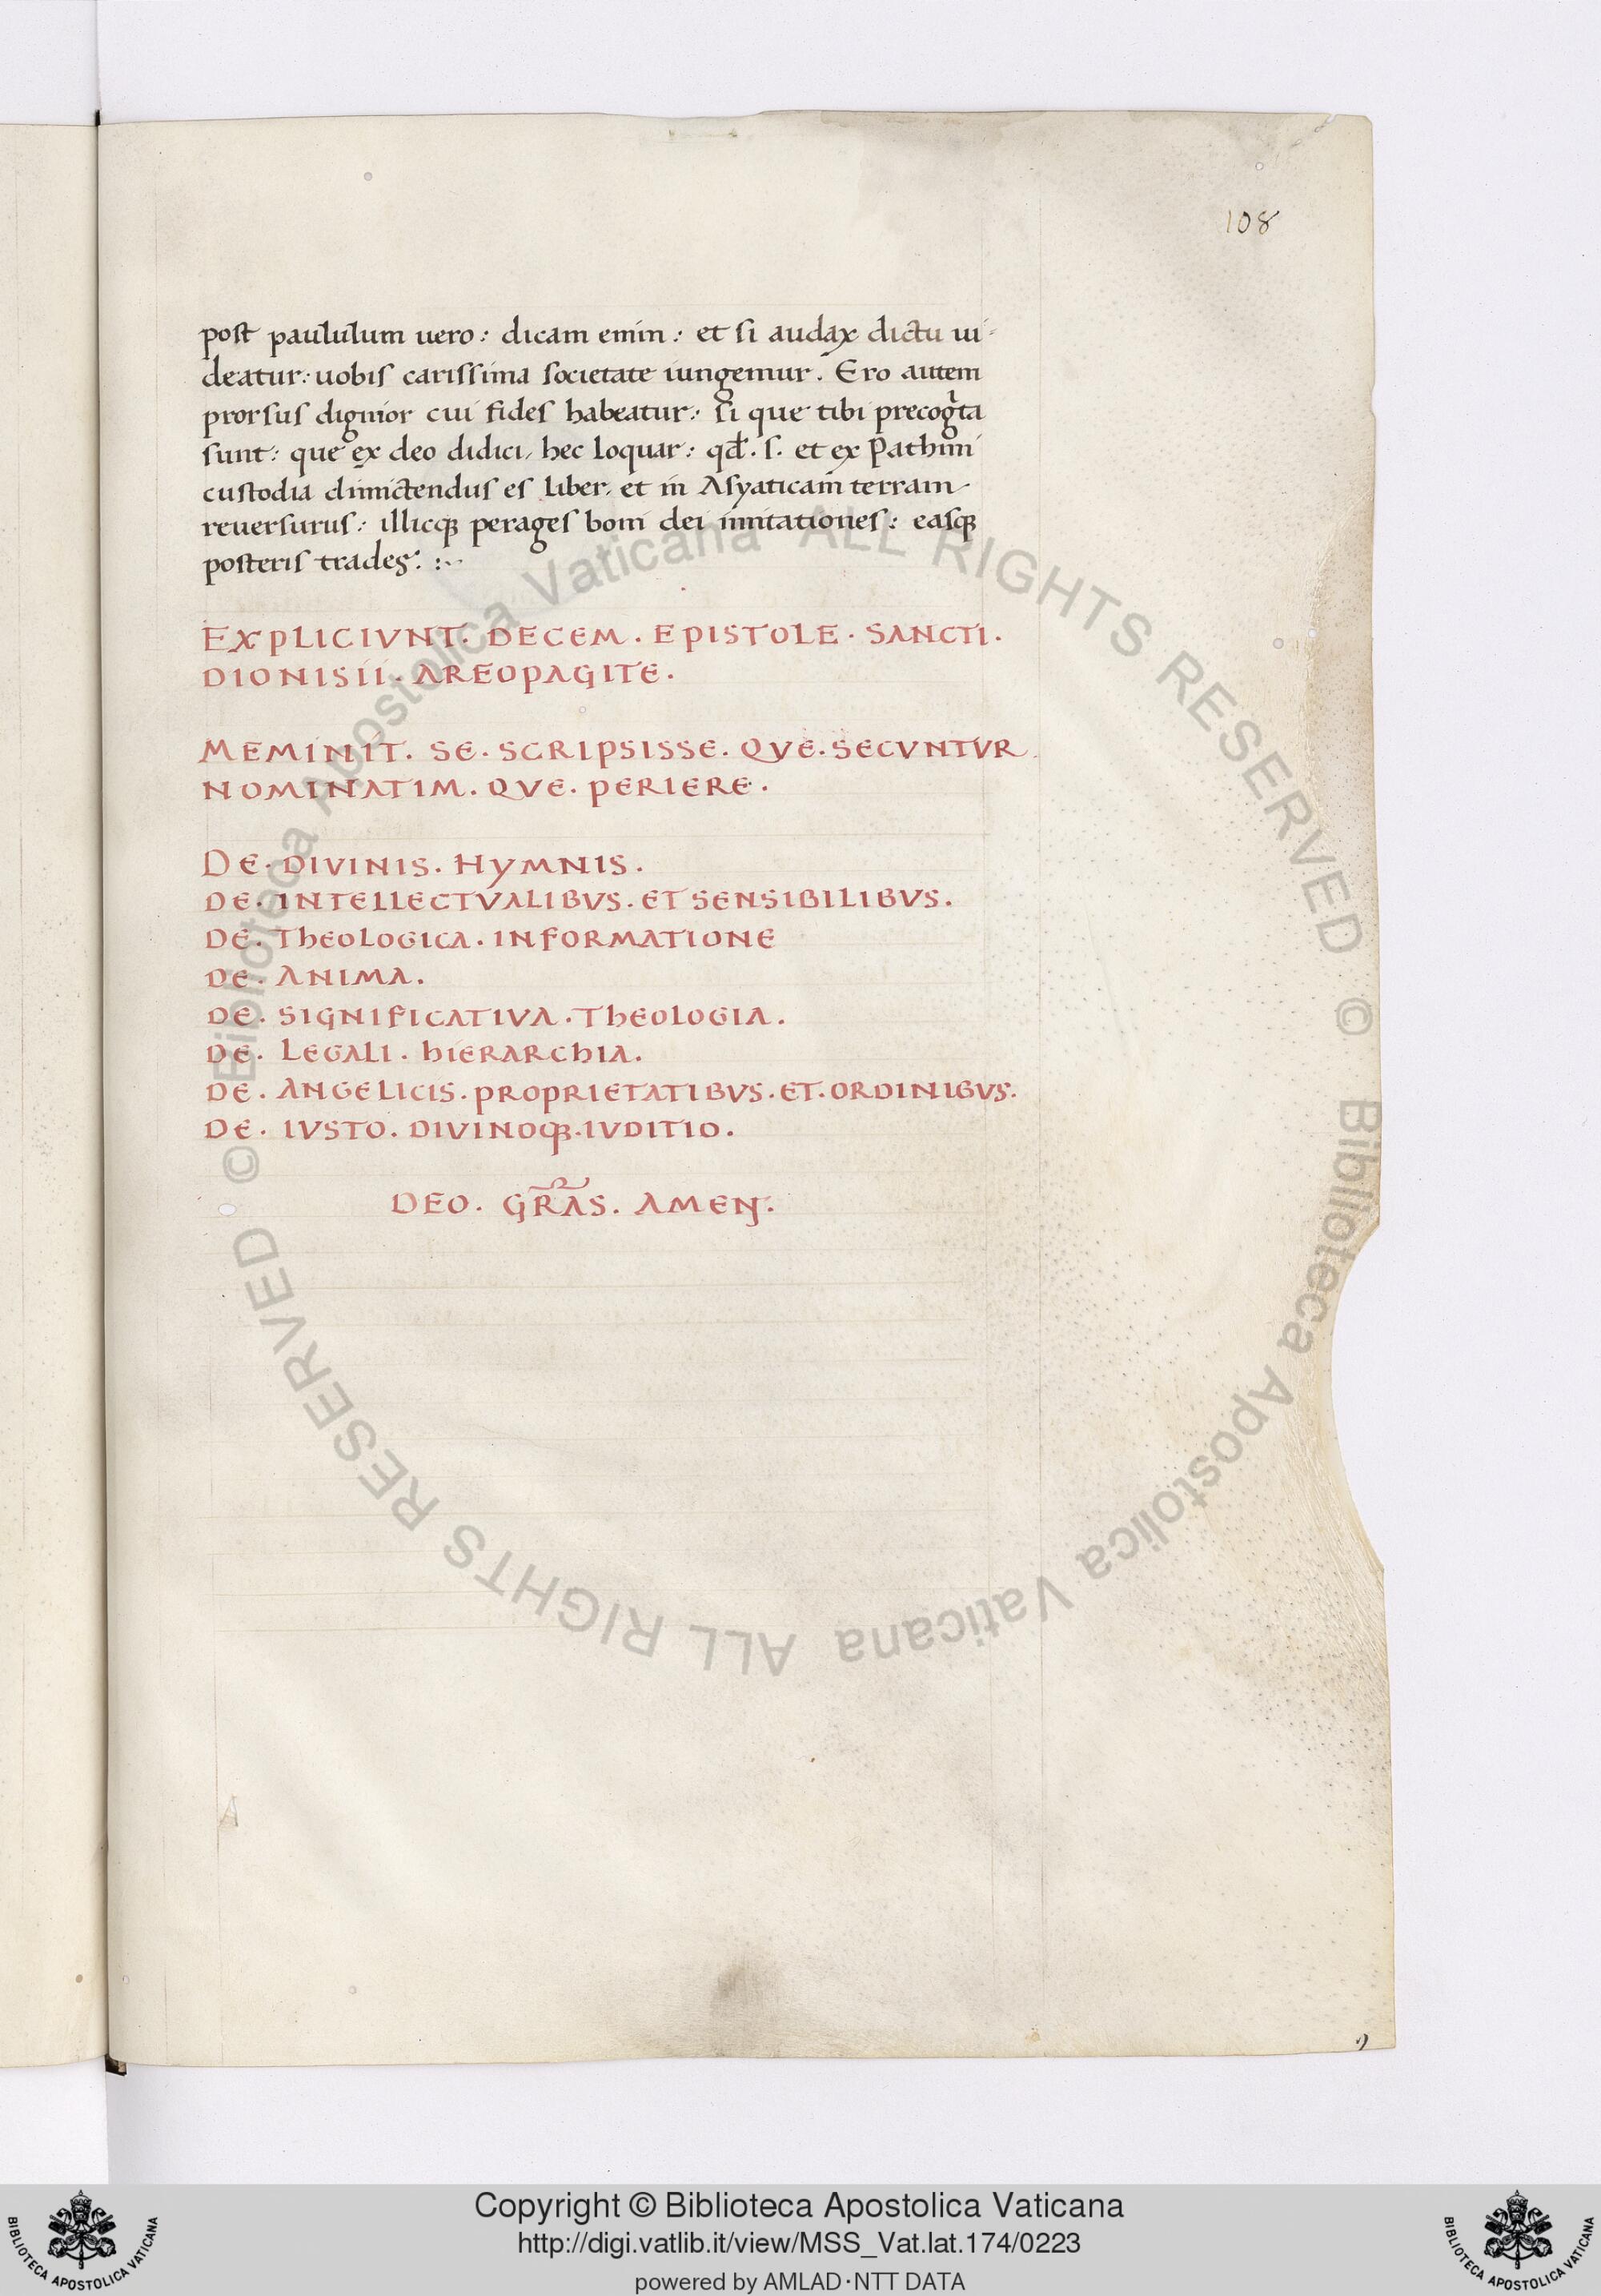 108
post paululum uero: dicam emin: et si audax dictu ui-
deatur: uobis carissima societate iungemur. Ero autem
prorsus dignior cui fides habeatur: si que tibi precog̃ta
sunt: que ex deo didici, hec loquar: qđ. s. et ex Pathmi
custodia dimictendus es liber, et in Asyaticam terram
reuersurus: illicqꝫ perages boni dei imitationes: easqꝫ
posteris trades. :~
EXPLICIVNT. DECEM. EPISTOLE. SANCTI.
DIONISII. AREOPAGITE.
MEMINIT. SE. SCRIPSISSE. QVE. SECVNTVR.
NOMINATIM. QVE. PERIERE.
DE. DIVINIS. HYMNIS.
DE. INTELLECTVALIBVS. ET SENSIBILIBVS.
DE. ThEOLOGICA. INFORMATIONE
DE. ANIMA.
DE. SIGNIFICATIVA. ThEOLOGIA.
DE. LEGALI. hIERARChIA.
DE. ANGELICIS. PROPRIETATIBVS. ET. ORDINIBVS.
DE. IVSTO. DIVINOQꝫ. IVDITIO.
DEO. GR̃AS. AMEN.
A
© Biblioteca Apostolica Vaticana ALL RIGHTS RESERVED © Biblioteca Apostolica Vaticana ALL RIGHTS RESERVED
Copyright © Biblioteca Apostolica Vaticana
http://digi.vatlib.it/view/MSS_Vat.lat.174/0223
powered by AMLAD·NTT DATA
BIBLIOTECA APOSTOLICA VATICANA
BIBLIOTECA APOSTOLICA VATICANA